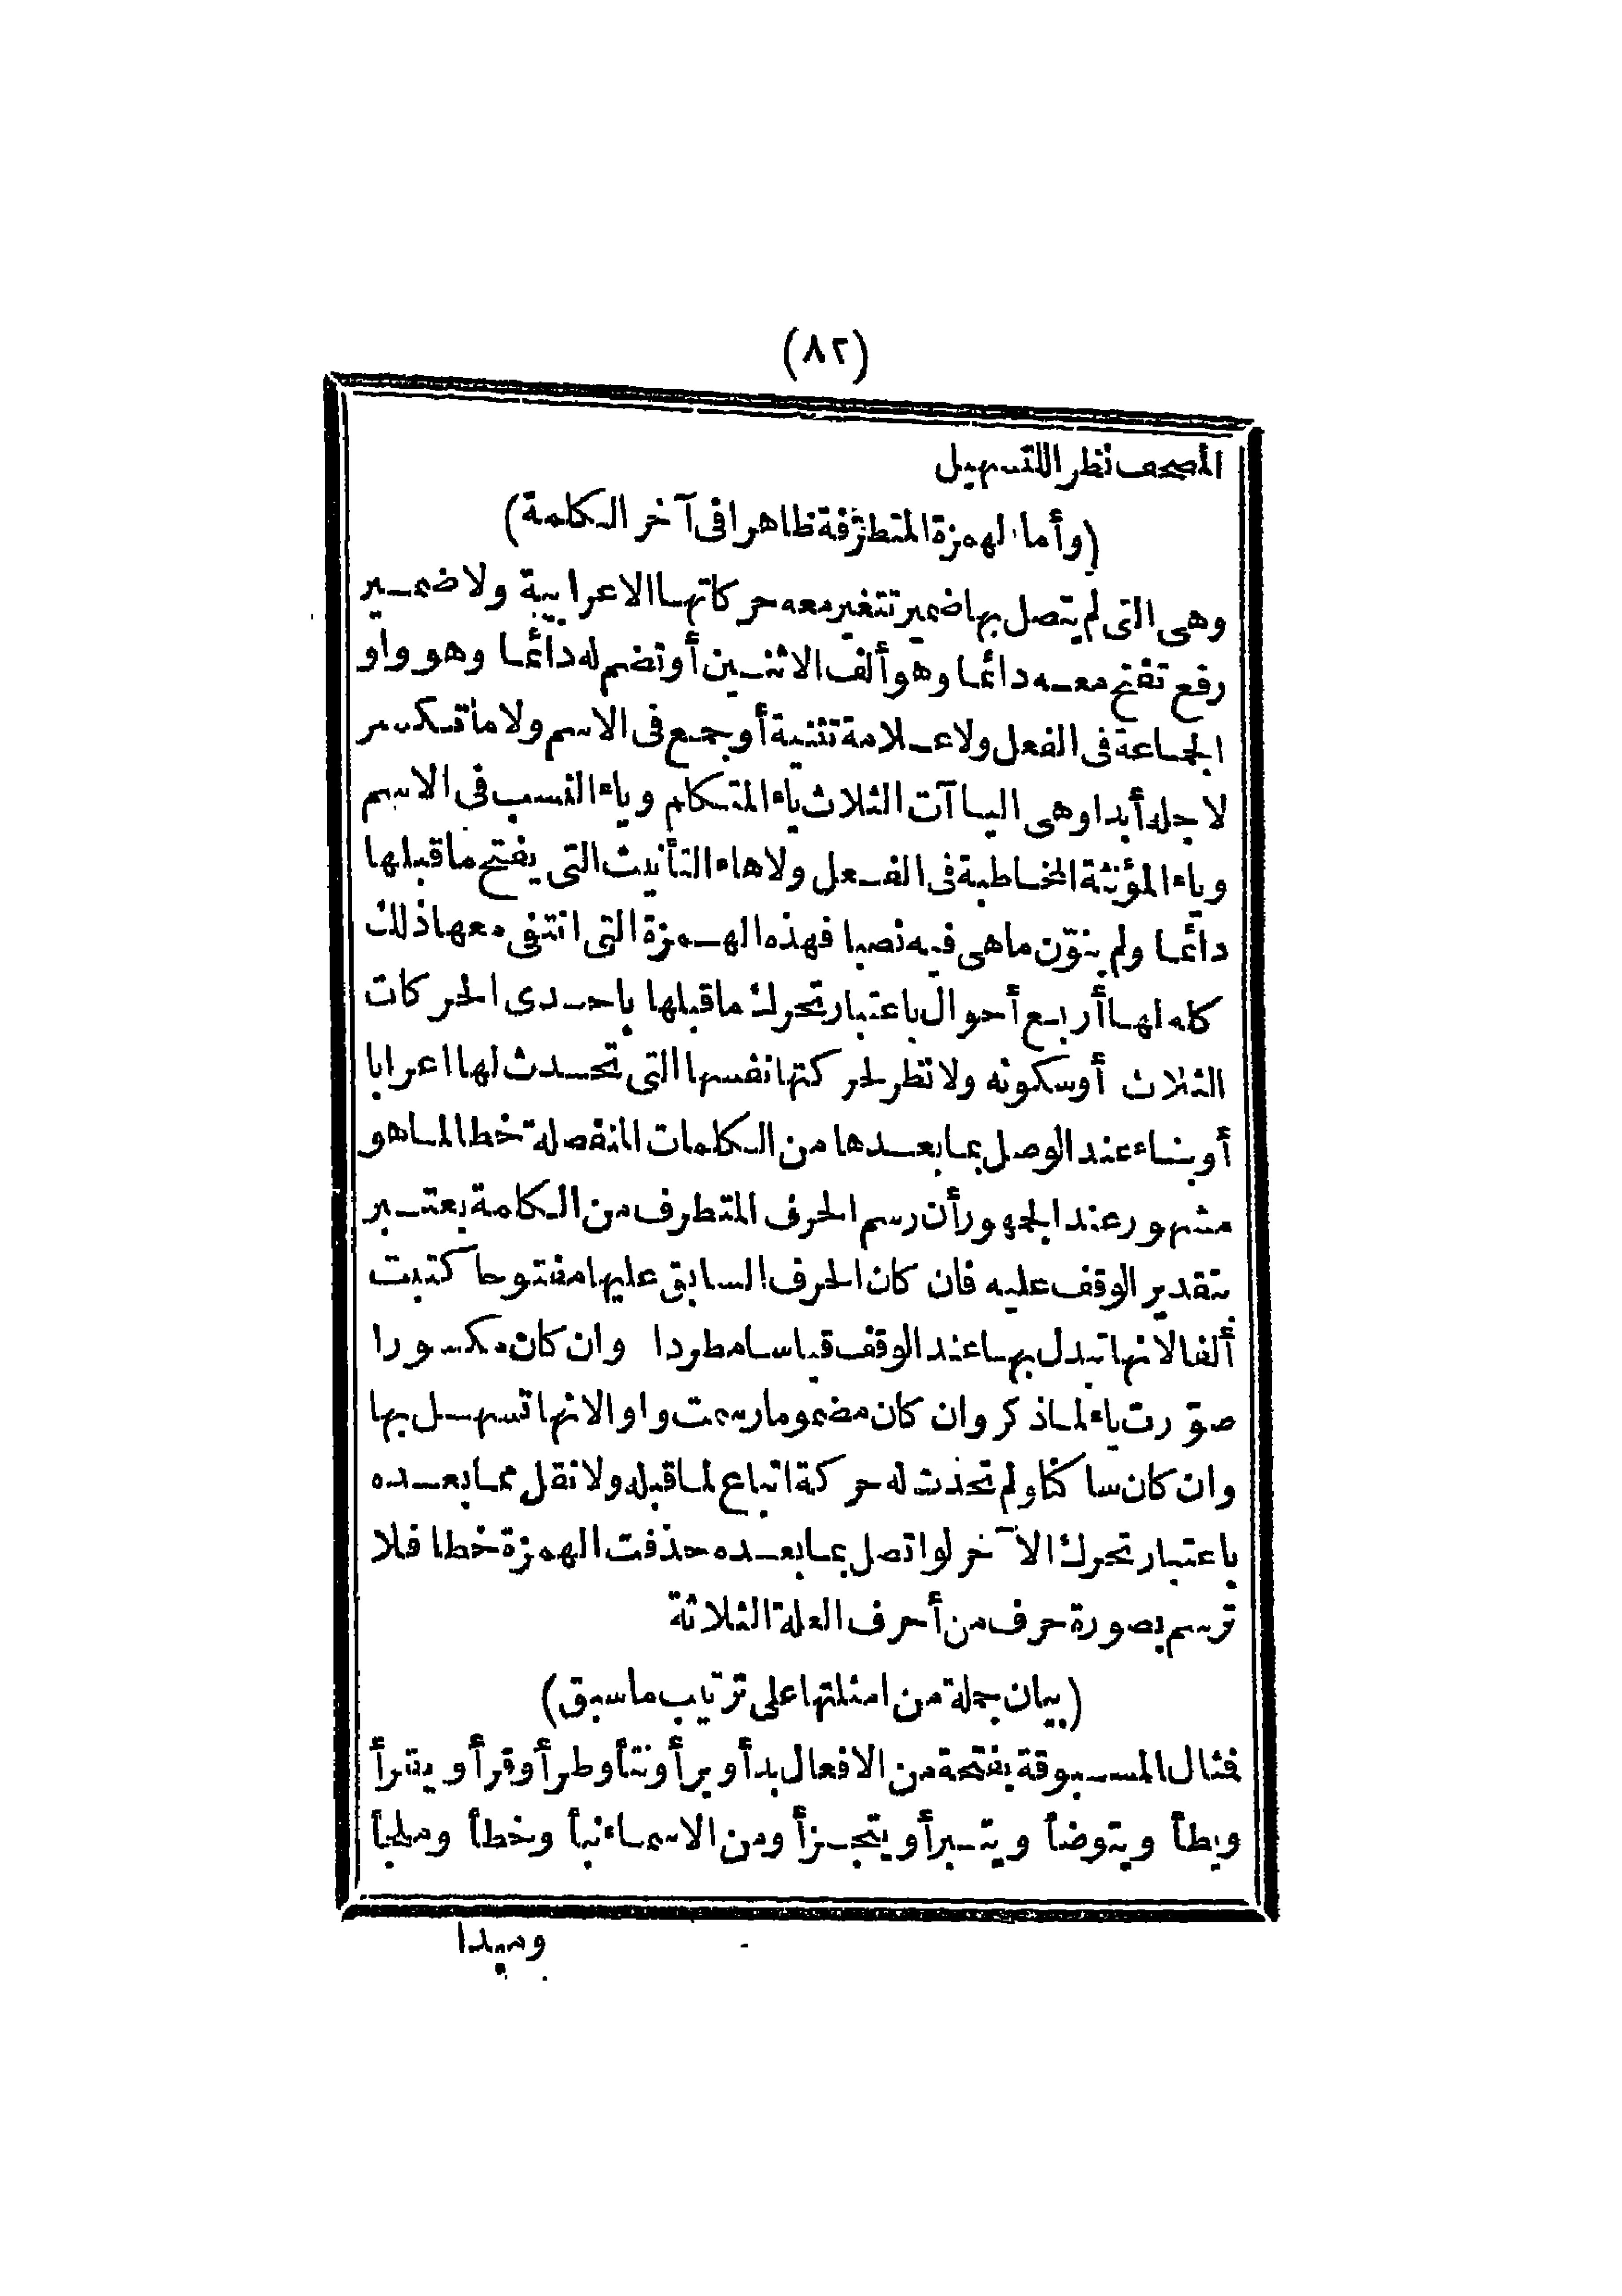 (٨٢)
المصحف نظرا للتسهيل
(وأما الهمزة المتطرّفة ظاهرا فى آخر الكلمة)
وهى التى لم يتصل بها ضمير تتغير معه حركاتها الاعرابية ولا ضمير
رفع تفتح معه دائما وهو ألف الاثنين أو تضم له دائما وهو واو
الجماعة فى الفعل ولا علامة تثنية أو جمع فى الاسم ولا ما تكسر
لاجله أبدا وهى الياآت الثلاث ياء المتكلم وياء النسب فى الاسم
وياء المؤنثة المخاطبة فى الفعل ولا هاء التأنيث التى يفتح ما قبلها
دائما ولم ينوّن ما هى فيه نصبا فهذه الهمزة التى انتفى معها ذلك
كله لها أربع أحوال باعتبار تحرك ما قبلها باحدى الحركات
الثلاث أو سكونه ولا نظر لحركتها نفسها التى تحدث لها اعرابا
أو بناء عند الوصل بما بعدها من الكلمات المنفصلة خطا لما هو
مشهور عند الجمهور أن رسم الحرف المتطرف من الكلمة يعتبر
بتقدير الوقف عليه فان كان الحرف السابق عليها مفتوحا كتبت
ألفا لانها تبدل بها عند الوقف قياسا مطردا وان كان مكسورا
صوّرت ياء لما ذكر وان كان مضموما رسمت واوا لانها تسهل بها
وان كان ساكنا ولم تحدث له حركة اتباع لما قبله ولا نقل مما بعده
باعتبار تحرك الآخر لو اتصل بما بعده حذفت الهمزة خطا فلا
ترسم بصورة حرف من أحرف العلة الثلاثة
(بيان جملة من امثلتها على ترتيب ما سبق)
فثال المسبوقة بفتحة من الافعال بدأ وبرأ ونتأ وطرأ وقرأ ويقرأ
ويطأ ويتوضأ ويتبرأ ويتجزأ ومن الاسماء نبأ وخطأ وملجأ
ومبدا